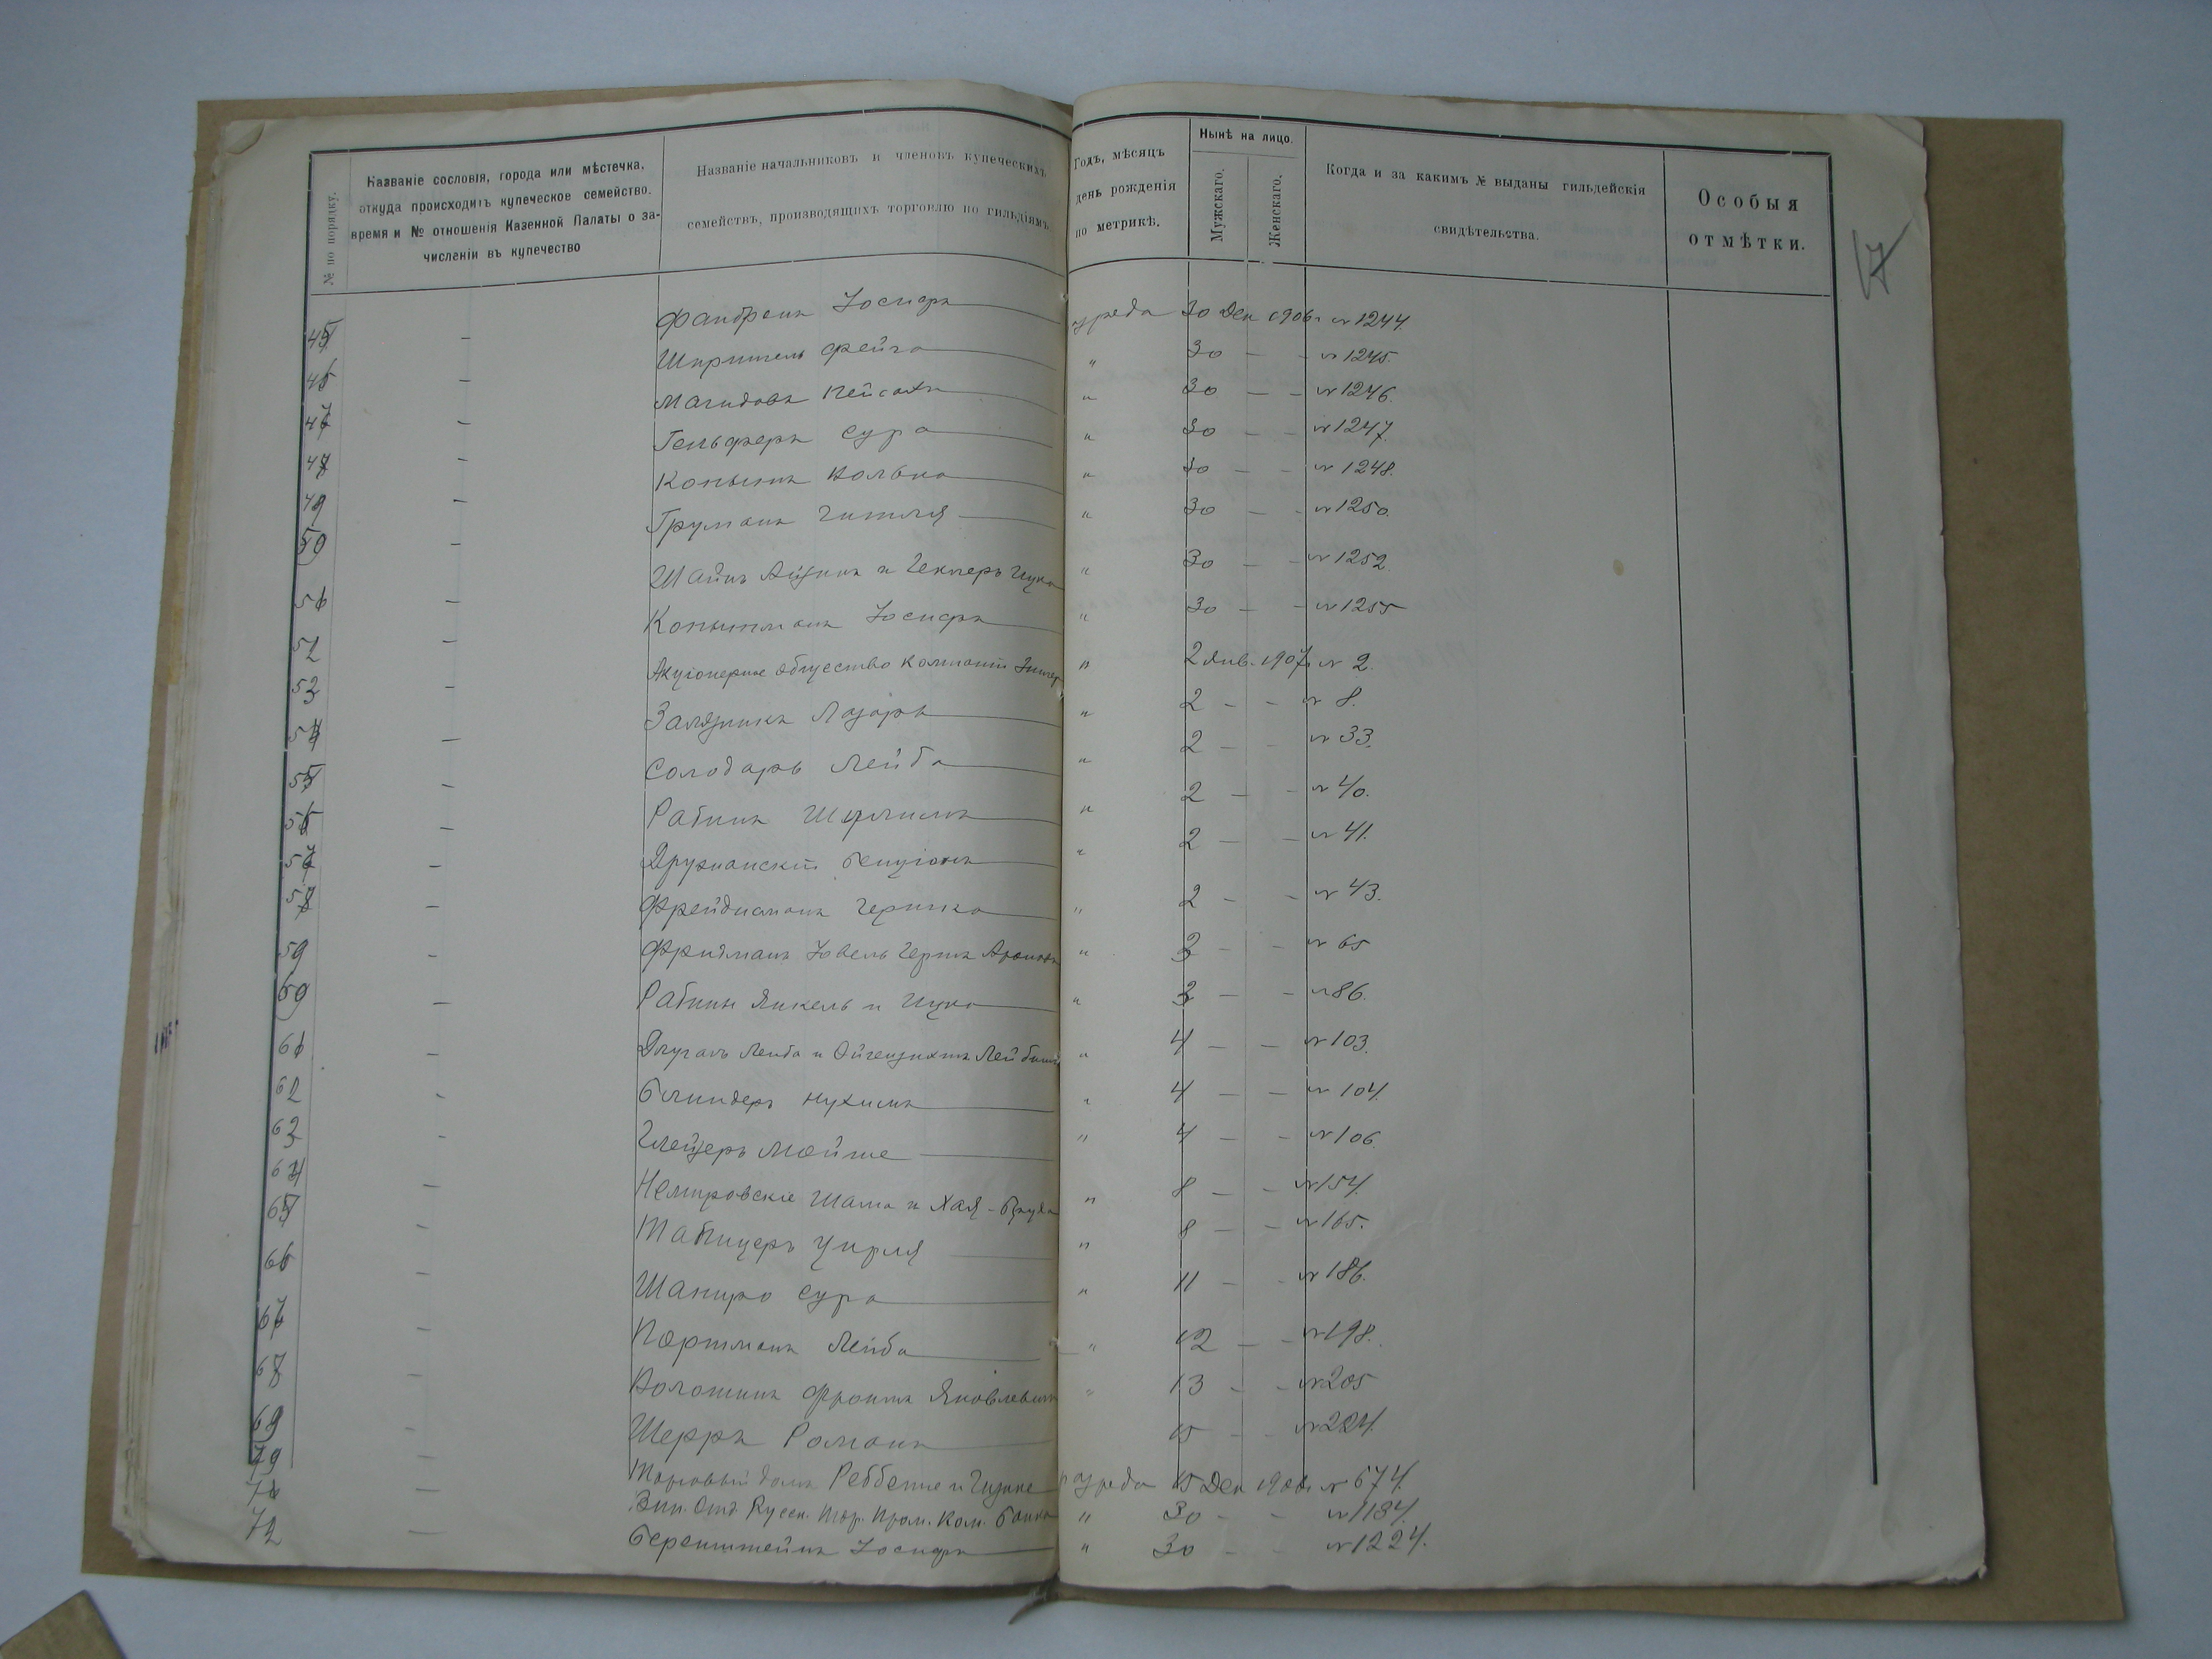 № по порядку.
Названіе сословія, города или мѣстечка,
откуда происходитъ купеческое семейство.
время и № отношенія Казенной Палаты о за-
численіи въ купечество
Названіе начальниковъ и членовъ купеческихъ
семействъ, производящихъ торговлю по гильдіямъ.
Годъ, мѣсяцъ
день рожденія
по метрикѣ.
Нынѣ на лицо.
Мужскаго.
Женскаго.
Когда и за какимъ № выданы гильдейскія
свидѣтельства.
Особыя
отмѣтки.
17
45 — Іосифъ 30 Дек 1906 г № 1244.
46 — Фейга " 30 — — № 1245.
47 — Магидовъ Пейсахъ " 30 — — № 1246.
48 — Гельферъ Сура " 30 — — № 1247.
49 — Копытъ Волько " 30 — — № 1248.
50 — Груманъ Гитля " 30 — — № 1250.
51 — и " 30 — — № 1252.
52 — Копытманъ Іосифъ " 30 — — № 1255
53 — Акціонерное Общество Компаніи Зингеръ " 2 Янв. 1907 г № 2.
54 — Залязникъ Лазарь " 2 — — № 8.
55 — Солодарь Лейба " 2 — — № 33.
56 — Рабинъ Шулимъ " 2 — — № 40.
57 — Дружанскій Бенціонъ " 2 — — № 41.
58 — Фрейдисманъ Гершко " 2 — — № 43.
59 — Фридманъ Іовель Гершъ " 3 — — № 65
60 — Рабины Янкель и Ицко " 3 — — № 86.
61 — Длугачъ Лейба и " 4 — — № 103.
62 - Блиндеръ Нухимъ " 4 — — № 104.
63 - Глейзеръ Мойше " 4 — — № 106
64 — Немировскіе Шама и Хая- " 8 — — № 154.
65 — Табицеръ Цирля " 8 — — № 165.
66 — Шапиро Сура " 11 — - № 186.
67 — Портманъ Лейба " 12 — — № 198.
68 — Волошинъ Фроимъ Яковлевичъ " 13 - - № 205
69 — Шерръ Романъ 15 - - № 224.
70 — Торговый домъ и разряда 15 Дек 1906 г № 674.
71 — Отд. Русск. Тор. Пром. Ком. Банка " 30 - - № 1184.
72 — Беренштейнъ Іосифъ " 30 - - № 1224.